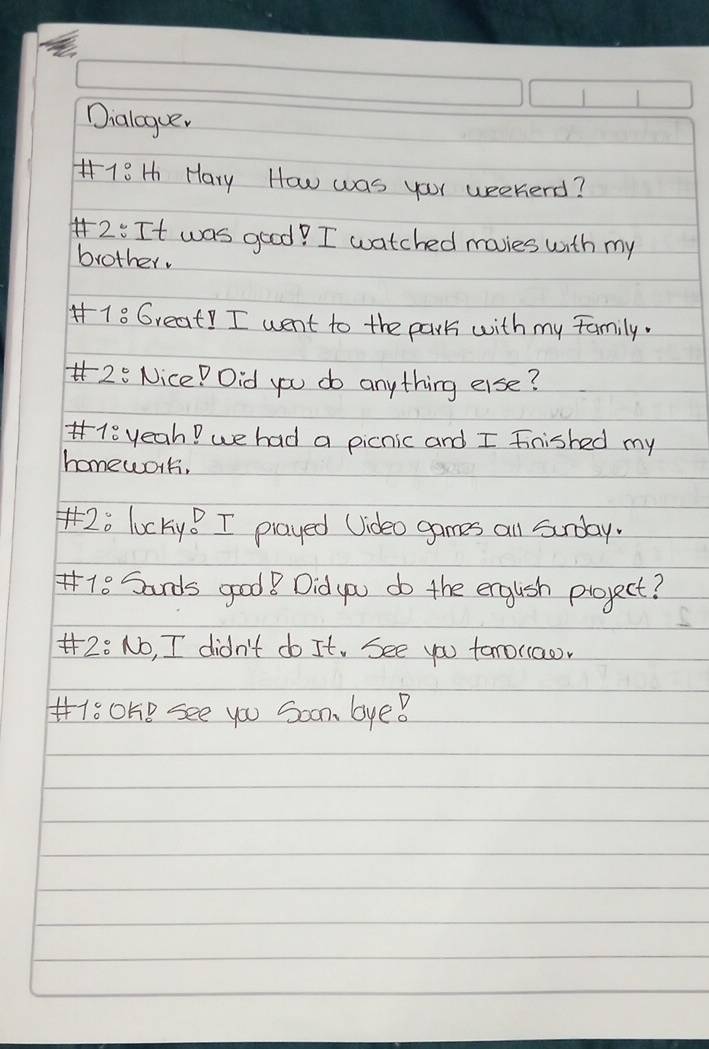 Dialogue.
#1: Hi Mary How was your weekend?
#2: It was good! I watched movies with my
brother.
#1: Great! I went to the park with my Family.
#2: Nice! Did you do anything else?
#1: yeah! we had a picnic and I Finished my
homework.
#2: lucky! I played Video games all Sunday.
#1: Sounds good! Did you do the english project?
#2: No, I didn't do It. See you tomorrow.
#1: OK! see you Soon. bye!